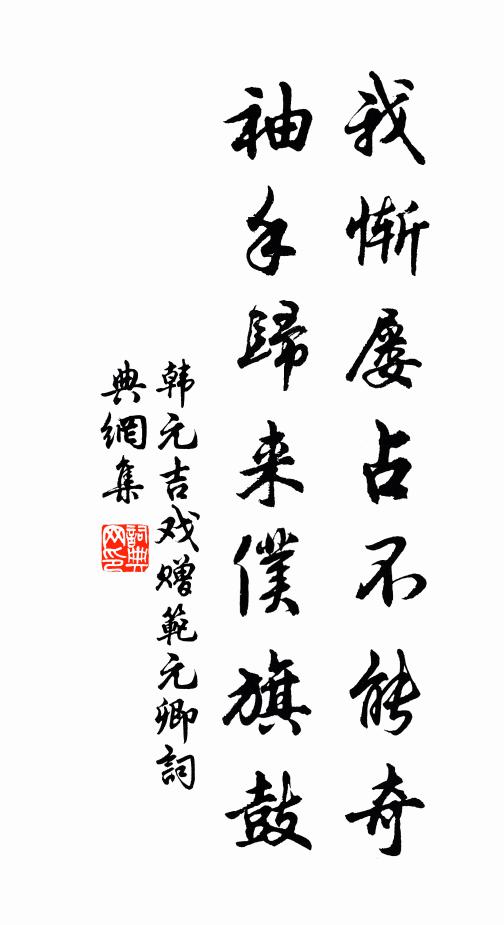 我慚屡占不能奇
袖手歸来僕旗鼓
韩元吉戏赠範元卿詞
典網集
詞典网印